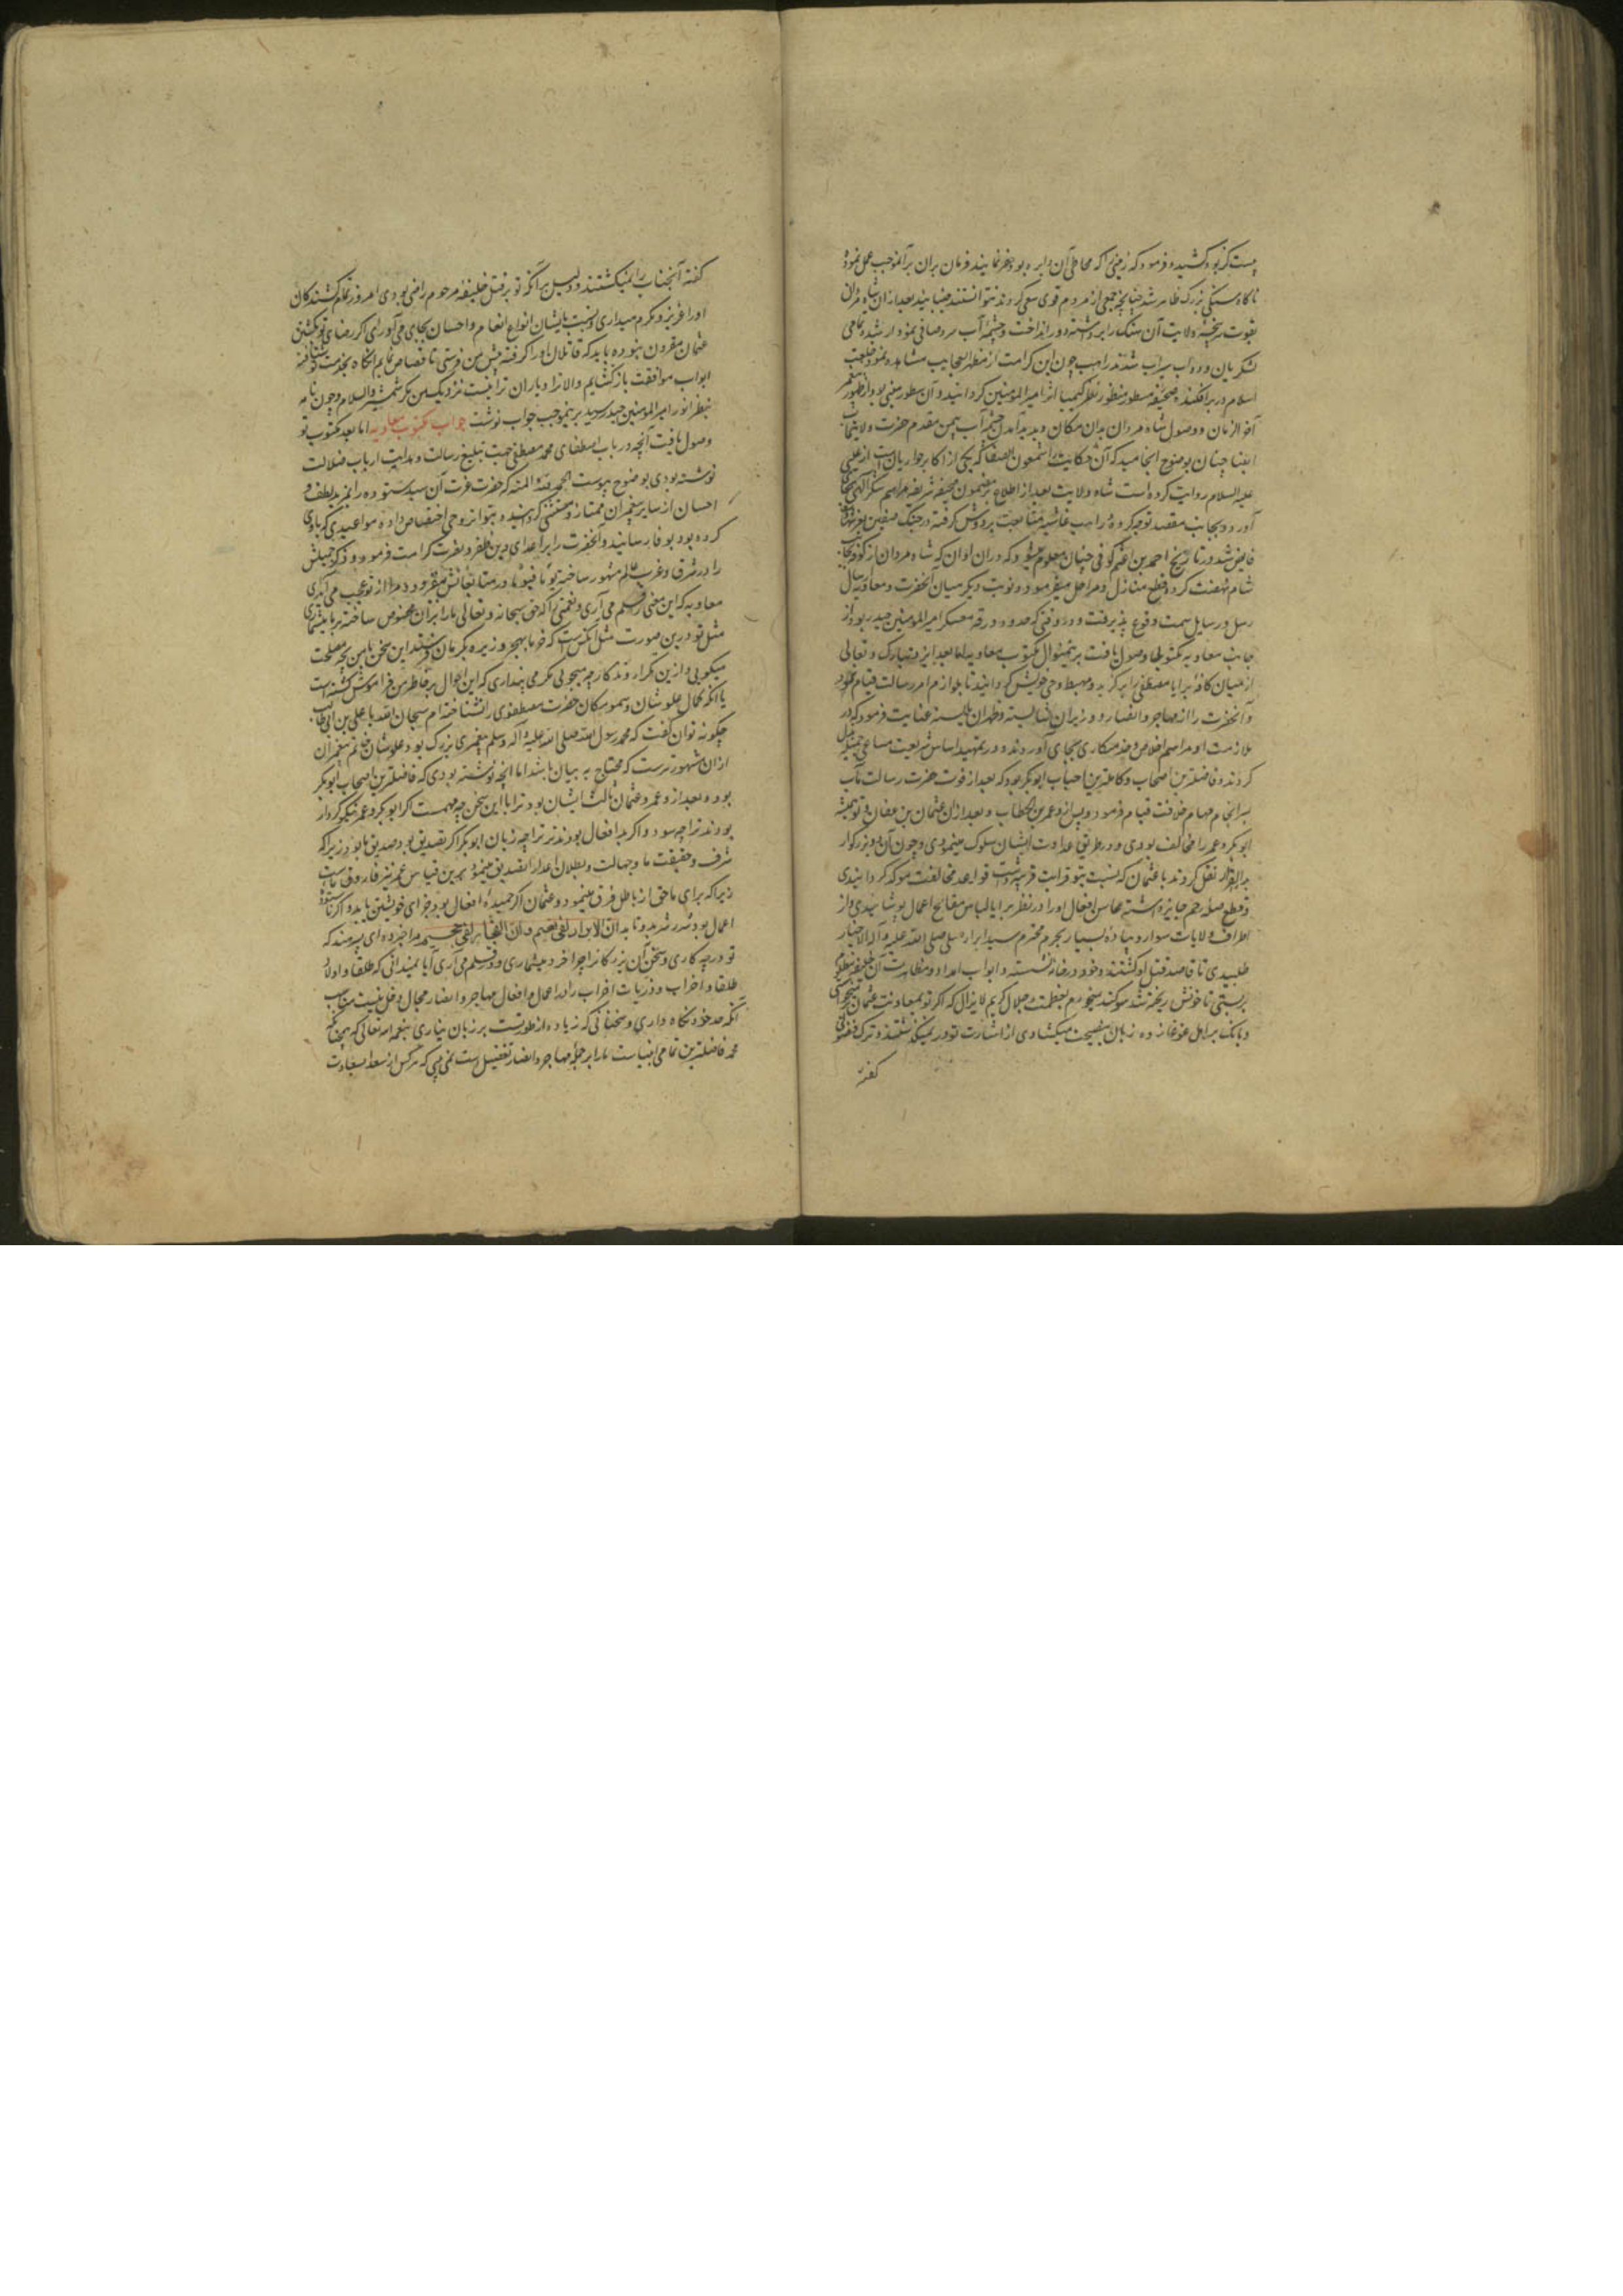 بدست کریود کشیده فرمود که زمینی را که محاطی آن دایره بود حفر نمایند فرمان بران بر آنموجب عمل نموده
ناکاه سنکی بزرک ظاهر شد چنانچه جمعی از مردم قوی سعی کردند نتوانستند جنبانید بعد ازان شاه مردان
بقوت سرپنجه ولایت آن سنک را برداشته دور انداخت و چشمه آب سرد صافی نمودار شد و تمامی
لشکریان و دواب سیراب شدند راهب چون این کرامت از مظهر العجایب مشاهده نمود خلعت
اسلام در بر افکنده صحیفه مسطور منظور نظر کیمیا اثر امیر المومنین کردانید و آن سطور مبنی بود از ظهور پیغمبر
آخر الزمان و وصول شاه مردان بدان مکان و پدید آمدن چشمه آب بیمن مقدم حضرت ولایتمآب
ایضا چنان بوضوح انجامید که آن حکایت را شمعون الصفا که یکی از اکابر حواریان است از عیسی
علیه السلام روایت کرده است شاه ولایت بعد از اطلاع بر مضمون صحیفه شریفه مراسم شکر الهی بجای
آورد و بجانب مقصد توجه کرده و راهب غاشیه متابعت بر دوش کرفته در جنک صفین بعز شهادت
فایض شد و در تاریخ احمد بن اعثم کوفی چنان معلوم میشود که دران اوان که شاه مردان از کوفه بجانب
شام نهضت کرده قطع منازل و مراحل میفرمود دو نوبت دیکر میان آنحضرت و معاویه ارسال
رسل و رسایل سمت وقوع پذیرفت و در وقتی که حدود رقه معسکر امیر المومنین حیدر بود از
جانب معاویه مکتوبی وصول یافت برینمنوال مکتوب معاویه اما بعد ایزد تبارک و تعالی
از میان کافه برایا مصطفی را برکزید و مهبط وحی خویش کردانید تا بلوازم امر رسالت قیام نمود
و آنحضرت را از مهاجر و انصار وزیران شایسته و ظهیران بایسته عنایت فرمود که در
ملازمت او مراسم اخلاص و خدمتکاری بجای آوردند و در تمهید اساس شریعت مساعی جمیله مبذول
کردند و فاضلترین اصحاب و کاملترین احباب ابوبکر بود که بعد از فوت حضرت رسالت مآب
بسرانجام مهام خلافت قیام فرمود و پس ازو عمر بن الخطاب و بعد ازان عثمان بن عفان و تو همیشه
ابوبکر و عمر را مخالف بودی و در طریق عداوت ایشان سلوک مینمودی و چون آن دو بزرکوار
بدار القرار نقل کردند با عثمان که نسبت بتو قرابت قریبه داشت قواعد مخالفت موکد کردانیدی
و قطع صله رحم جایز داشته محاسن افعال او را در نظر برایا لباس مقابح اعمال پوشانیدی و از
اطراف ولایات سوار و پیاده بسیار بحرم محترم سید ابرار صلی الله علیه و آله الاخیار
طلبیدی تا قاصد قتل او کشتند و خود در خانه نشسته و ابواب امداد و مظاهرت آن خلیفه مظلوم
بربستی تا خونش ریخته شد سوکند میخورم بعظمت و جلال کریم لایزال که اکر تو بمعاونت عثمان میخواستی
و بانک بر اهل غوغا زده زبان بنصیحت میکشادی از اشارت تو در نمیکذشتند و ترک فضولی
کفته
کفته آنجناب را نمیکشتند و دلیل بر آنکه تو بر قتل خلیفه مرحوم راضی بودی امروز تمام کشندکان
او را عزیز و مکرم میداری و نسبت بایشان انواع انعام و احسان بجای می آوری اکر رضای تو بکشتن
عثمان مقرون نبوده باید که قاتلان او را کرفته پیش من فرستی تا قصاص نمایم آنکاه بخدمت تو شتافته
ابواب موافقت باز کشایم و الا ترا و یاران ترا نیست نزدیک من مکر شمشیر والسلام و چون نامه
بنظر انور امیر المومنین حیدر رسید برینموجب جواب نوشت جواب مکتوب معاویه اما بعد مکتوب تو
وصول یافت آنچه در باب اصطفای محمد مصطفی جهت تبلیغ رسالت و هدایت ارباب ضلالت
نوشته بودی بوضوح پیوست الحمد لله و المنه که حضرت عزت آن سید ستوده را بمزید لطف و
احسان از سایر پیغمبران ممتاز و مستثنی کردانید و بتواتر وحی اختصاص داده مواعیدی که باوی
کرده بود بوفا رسانید و آنحضرت را بر اعدای دین ظفر و نصرت کرامت فرمود و ذکر جمیلش
را در شرق و غرب عالم مشهور ساخته یوما فیوما در متابعانش میفزود و مرا از تو عجب می آید ای
معاویه که این معنی را بقلم می آری و نعمتی را که حق سبحانه و تعالی ما را بر آن مخصوص ساخته بر ما میشماری
مثل تو درین صورت مثل آنکس است که خرما بهجر و زیره بکرمان فرستد این سخن با من بچه مصلحت
میکویی و ازین تکرار و تذکار چه میجویی مکر می پنداری که این احوال بر خاطر من فراموش کشته است
یا آنکه کمال علو شان و سمو مکان حضرت مصطفوی را نشناخته ام سبحان الله با علی بن ابی طالب
چکونه توان کفت که محمد رسول الله صلی الله علیه و آله و سلم پیغمبری بزرک بود و علو شان خاتم پیغمبران
ازان مشهورترست که محتاج به بیان باشد اما آنچه نوشته بودی که فاضلترین اصحاب ابوبکر
بود و بعد ازو عمر و عثمان ثالث ایشان بود ترا با این سخن چه مهمست اکر ابوبکر و عمر نیکو کردار
بودند ترا چه سود و اکر بد افعال بودند ترا چه زیان ابوبکر اکر بصدیق بود صدیق ما بود زیرا که
شرف و حقیقت ما و جهالت و بطلان اعدا را تصدیق مینمود برین قیاس عمر نیز فاروق ماست
زیرا که برای ما حق از باطل فرق مینمود و عثمان اکر حمیده افعال بود جزای خویشتن یابد و اکر ناستوده
اعمال بود ان الابرار لفی نعیم و ان الفجار لفی جحیم مرا خبر ده ای پسر هند که
تو در چه کاری و سخن آن بزرکان را چرا خرد میشماری و در قلم می آری آیا نمیدانی که طلقا و اولاد
طلقا و احزاب و ذریات احزاب را در اعمال و افعال مهاجر و انصار مجال دخل نیست مناسب
آنکه حد خود نکاه داری و سخنانی که زیاده از طور تست بر زبان نیاری بنعم الله تعالی که چنانکه
محمد فاضلترین تمامی انبیاست ما را بر جمله مهاجر و انصار تفضیل است نمی بینی که هر کس از سعدا سعادت